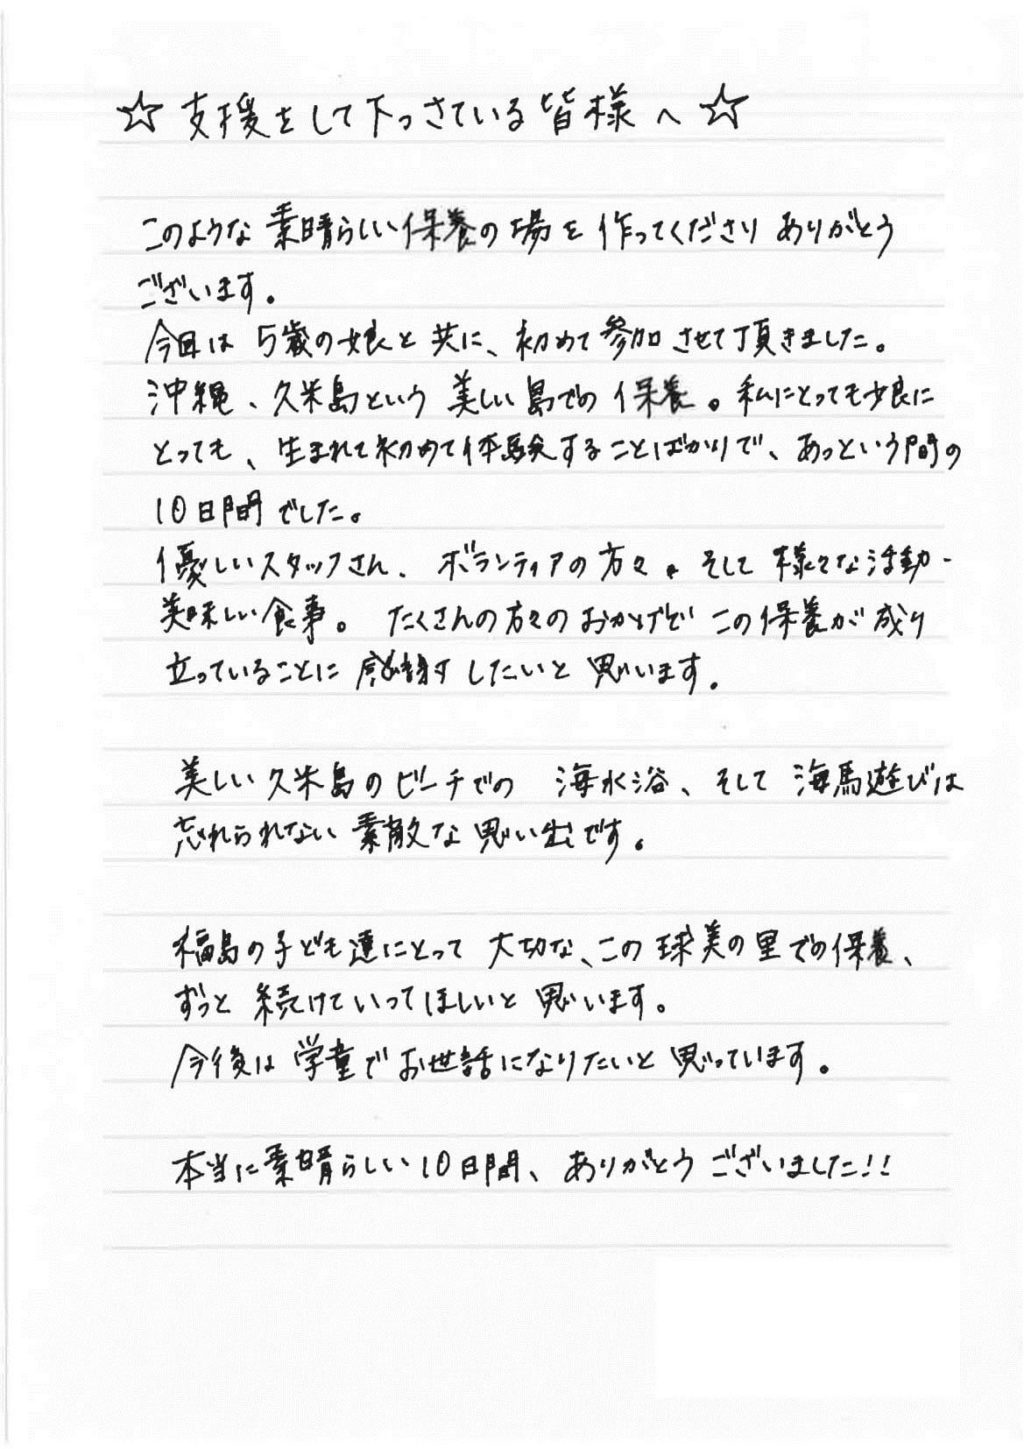 ☆ 支援をして下っさている皆様へ ☆
このような素晴らしい保養の場を作ってくださりありがとう
ございます。
今回は5歳の娘と共に、初めて参加させて頂きました。
沖縄、久米島という美しい島での保養。私にとっても娘に
とっても、生まれて初めて体験することばかりで、あっという間の
10日間でした。
優しいスタッフさん、ボランティアの方々。そして様々な活動・
美味しい食事。たくさんの方々のおかげでこの保養が成り
立っていることに感謝したいと思います。
美しい久米島のビーチでの 海水浴、そして海馬遊びは
忘れられない素敵な思い出です。
福島の子ども達にとって大切な、この球美の里での保養、
ずっと続けていってほしいと思います。
今後は学童でお世話になりたいと思っています。
本当に素晴らしい10日間、ありがとうございました!!